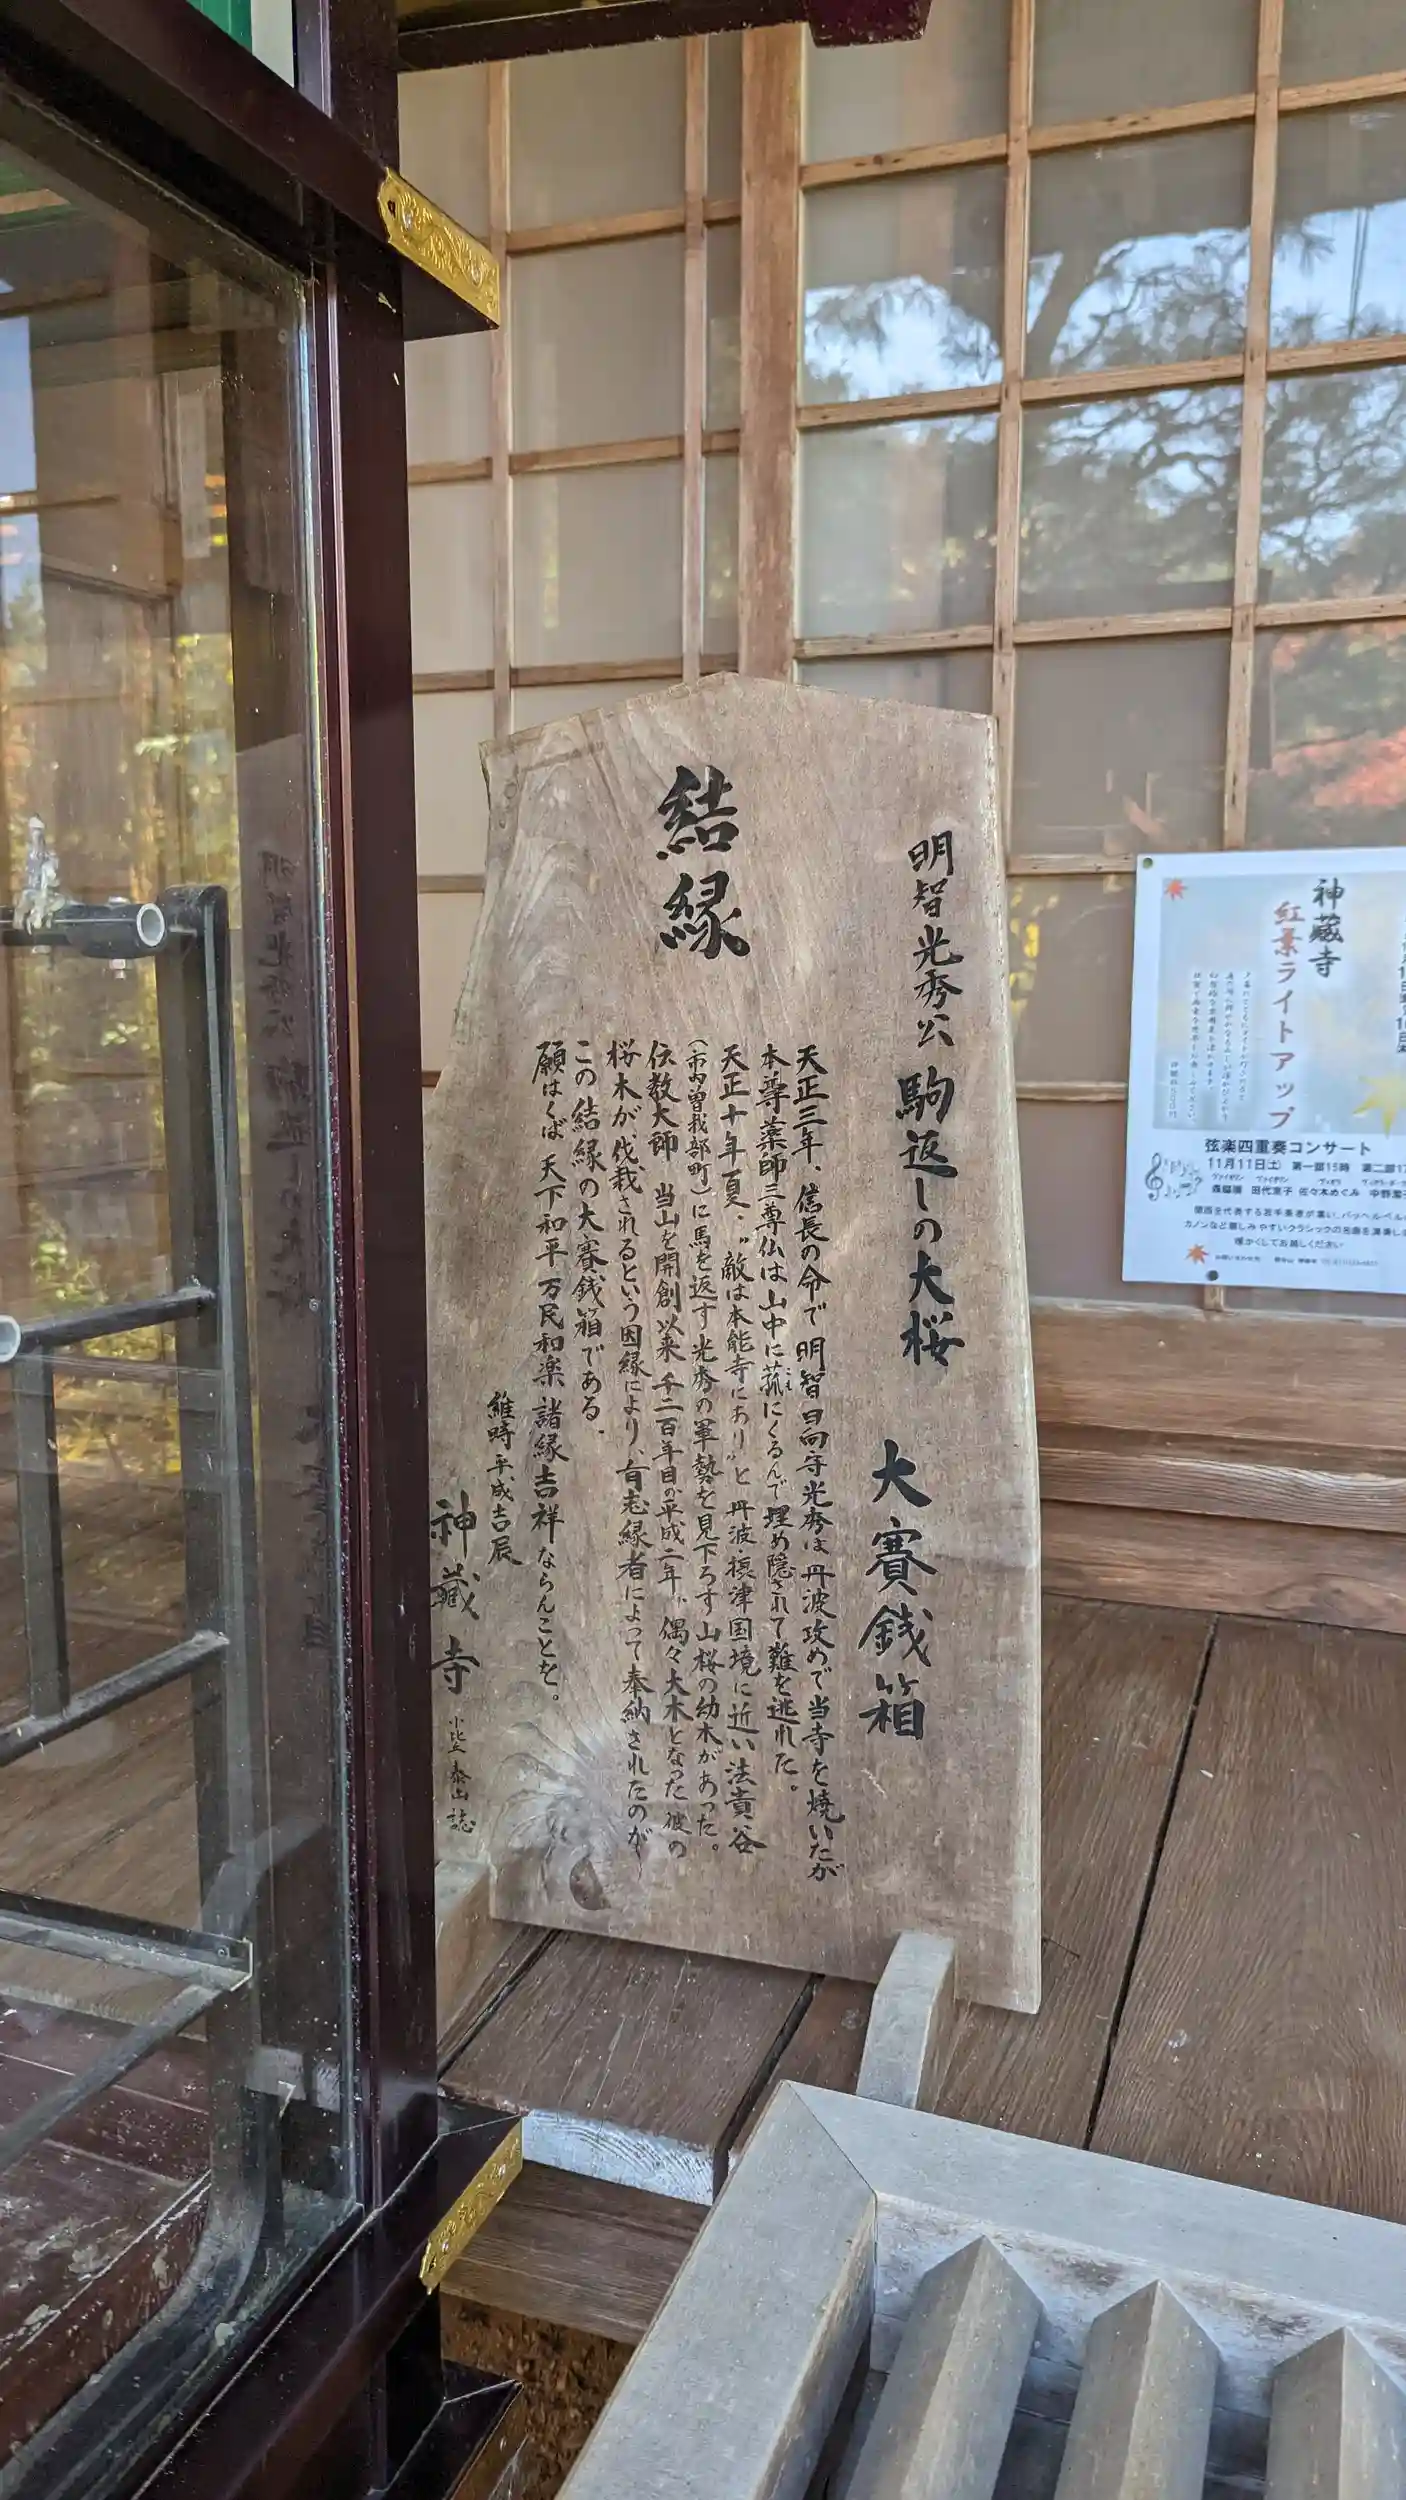 明智光秀公 駒返しの大桜 大賽銭箱
結縁
天正三年、信長の命で明智日向守光秀は丹波攻めで当寺を焼いたが
本尊薬師三尊仏は山中に菰にくるんで埋め隠されて難を逃れた。
天正十年夏、"敵は本能寺にあり"と丹波・摂津国境に近い法貴谷
(市内曽我部町)に馬を返す光秀の軍勢を見下ろす山桜の幼木があった。
伝教大師 当山を開創以来 千二百年目の平成二年、偶々大木となった彼の
桜木が、伐栽されるという因縁により、有志縁者によって奉納されたのが
この結縁の大賽銭箱である.
願はくば 天下和平 万民和楽 諸縁吉祥ならんことを。
維時 平成吉辰
神蔵寺
泰山 誌
神蔵寺
紅葉ライトアップ
弦楽四重奏コンサート
11月11日(土) 第一部15時 第二部17
ヴァイオリン ヴァイオリン ヴィオラ
田代直子 佐々木めぐみ 中野潔子
関西を代表する若手奏者が集い、パッヘルベルの
カノンなど親しみやすいクラシックの名曲を演奏し
暖かくしてお越しください